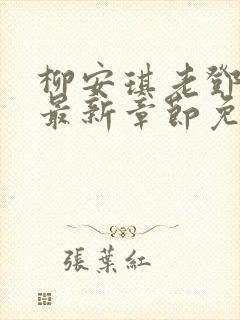 柳安琪老鄧
最新章節免
張葉紅